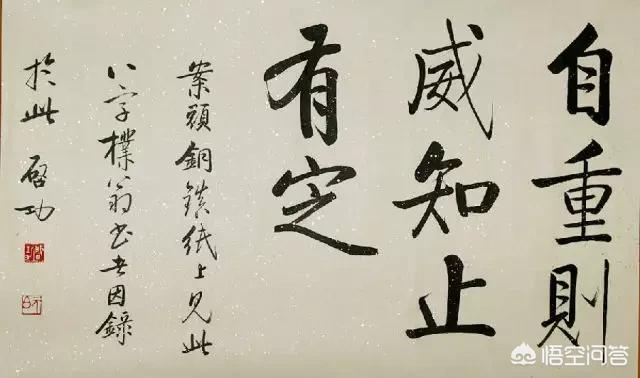 自重則
威知止
有定
案頭銅鎮紙上見此
八字樸翁書者因錄
於此 啓功
悟空问答